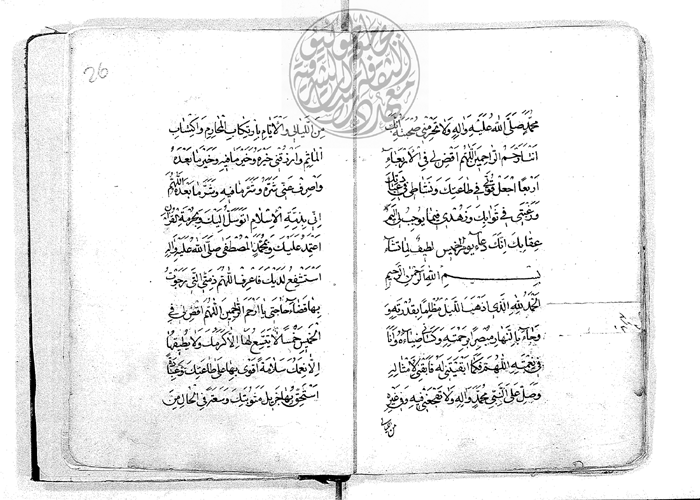 محمد صلى الله عليه واله ولا تحرمني صحبته انك
انت ارحم الراحمين اللهم اقض لي في الاربعاء
اربعا اجعل قوتي في طاعتك ونشاطي في عبادتك
ورغبتي في ثوابك وزهدي فيما يوجب لي اليم
عقابك انك لطيف لما تشاء دعاء يوم الخميس
بسم الله الرحمن الرحيم
الحمد لله الذي اذهب الليل مظلما بقدرته و
جاء بالنهار مبصرا برحمته وكساني ضياءه وانا
في نعمته اللهم فكما ابقيتني له فابقني لامثاله
وصل على النبي محمد واله ولا تفجعني فيه وفي غيره
من الليالي
26
من الليالي والايام بارتكاب المحارم واكتساب
الماثم وارزقني خيره وخير ما فيه وخير ما بعده
واصرف عني شره وشر ما فيه وشر ما بعده اللهم
اني بذمة الاسلام اتوسل اليك وبحرمة القران
اعتمد عليك وبمحمد المصطفى صلى الله عليه واله
استشفع لديك فاعرف اللهم ذمتي التي رجوت
بها قضاء حاجتي يا ارحم الراحمين اللهم اقض لي في
الخميس خمسا لا يتسع لها الا كرمك ولا يطيقها
الا نعمك سلامة اقوى بها على طاعتك وعبادة
استحق بها جزيل مثوبتك وسعة في الحال من